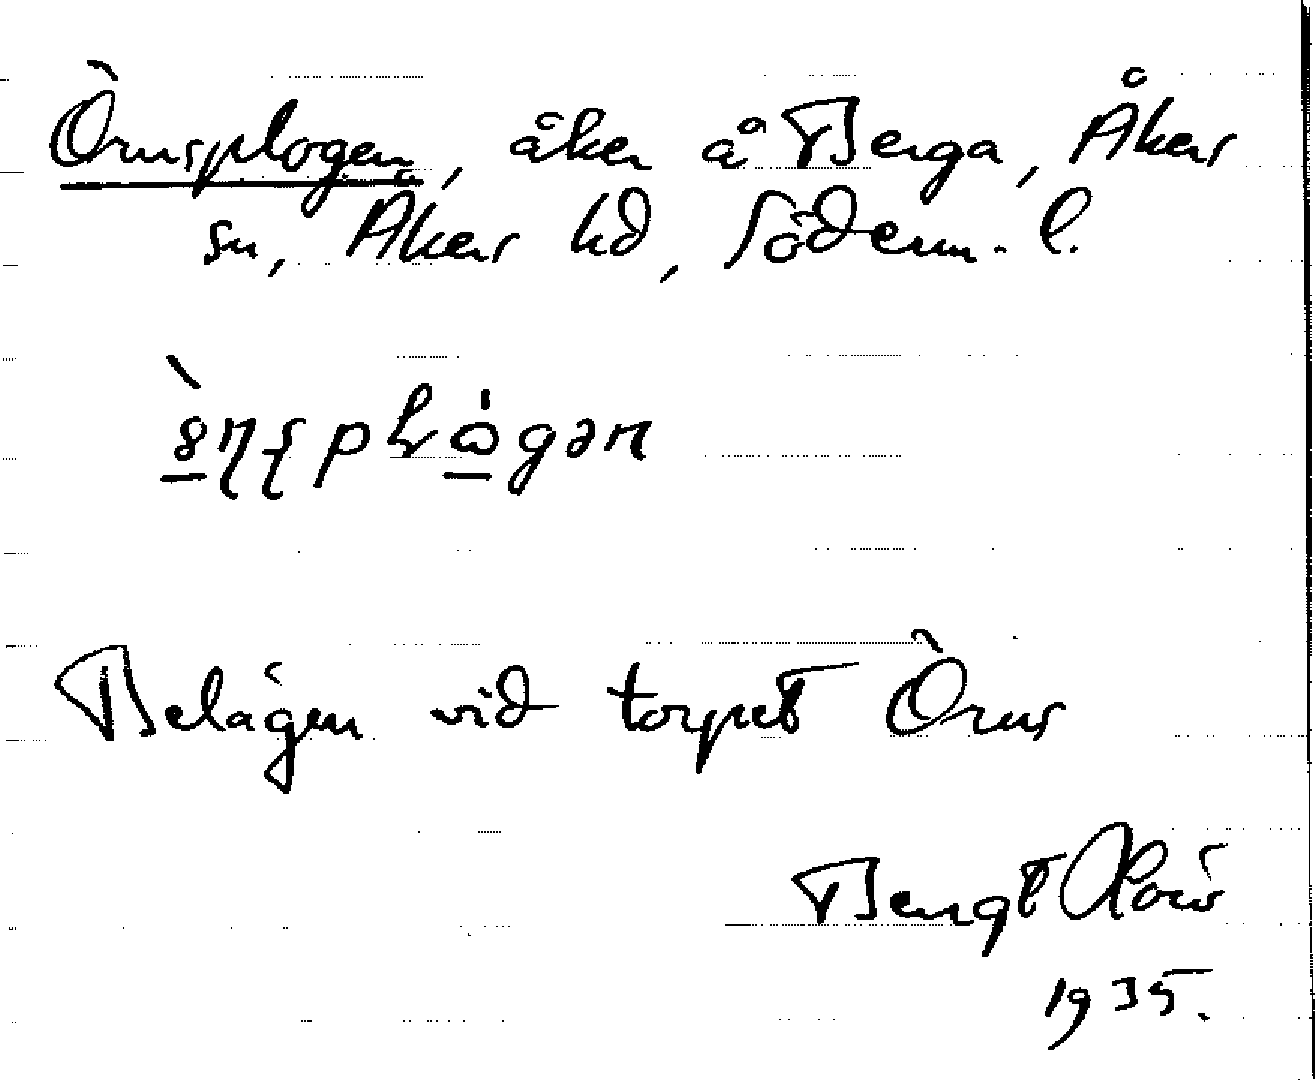 Örnsplogen, åker å Berga, Åkers
sn, Åkers hd, Söderm. l.
Belägen vid torpet Örns
Bengt
1935.